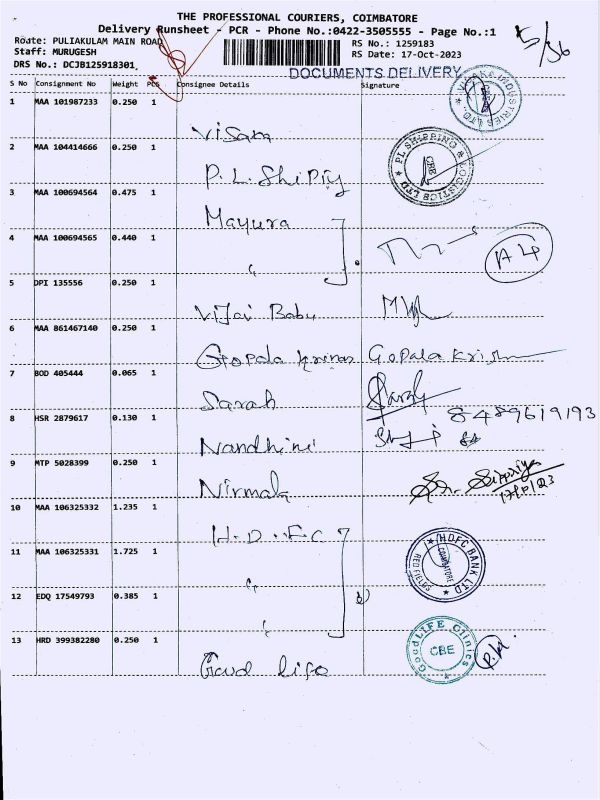 THE PROFESSIONAL COURIERS, COIMBATORE
Delivery Runsheet - PCR - Phone No.:0422-3505555 - Page No.:1
Route: PULIAKULAM MAIN ROAD
RS No.: 1259183
Staff: MURUGESH
RS Date: 17-Oct-2023
DRS No.: DCJB125918301
DOCUMENTS DELIVERY
S No Consignment No Weight PCS Consignee Details Signature
1 MAA 101987233 0.250 1 Visam
2 MAA 104414666 0.250 1 P.L. Shipiy
PL SHIPPING & LOGISTICS LTD CBE
3 MAA 100694564 0.475 1 Mayura
4 MAA 100694565 0.440 1 "
5 DPI 135556 0.250 1 Vijai Babu
6 MAA 861467140 0.250 1 Gopala Krisnan Gopala Krishn
7 BOD 405444 0.065 1 Sarah
8489619193
8 HSR 2879617 0.130 1 Nandhini
9 MTP 5028399 0.250 1 Nirmala
10 MAA 106325332 1.235 1 H.D.F.C
11 MAA 106325331 1.725 1 "
HDFC BANK LTD COIMBATORE RED FIELDS
12 EDQ 17549793 0.385 1 "
13 HRD 399382280 0.250 1 Good life
GoodLIFE Clinics CBE